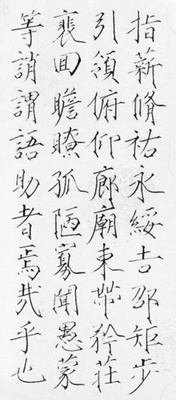 指薪脩祐永綏吉邵矩步
引領俯仰廊廟束帶矜莊
裵回瞻瞭孤陋寡聞愚蒙
等誚謂語助者焉哉乎也